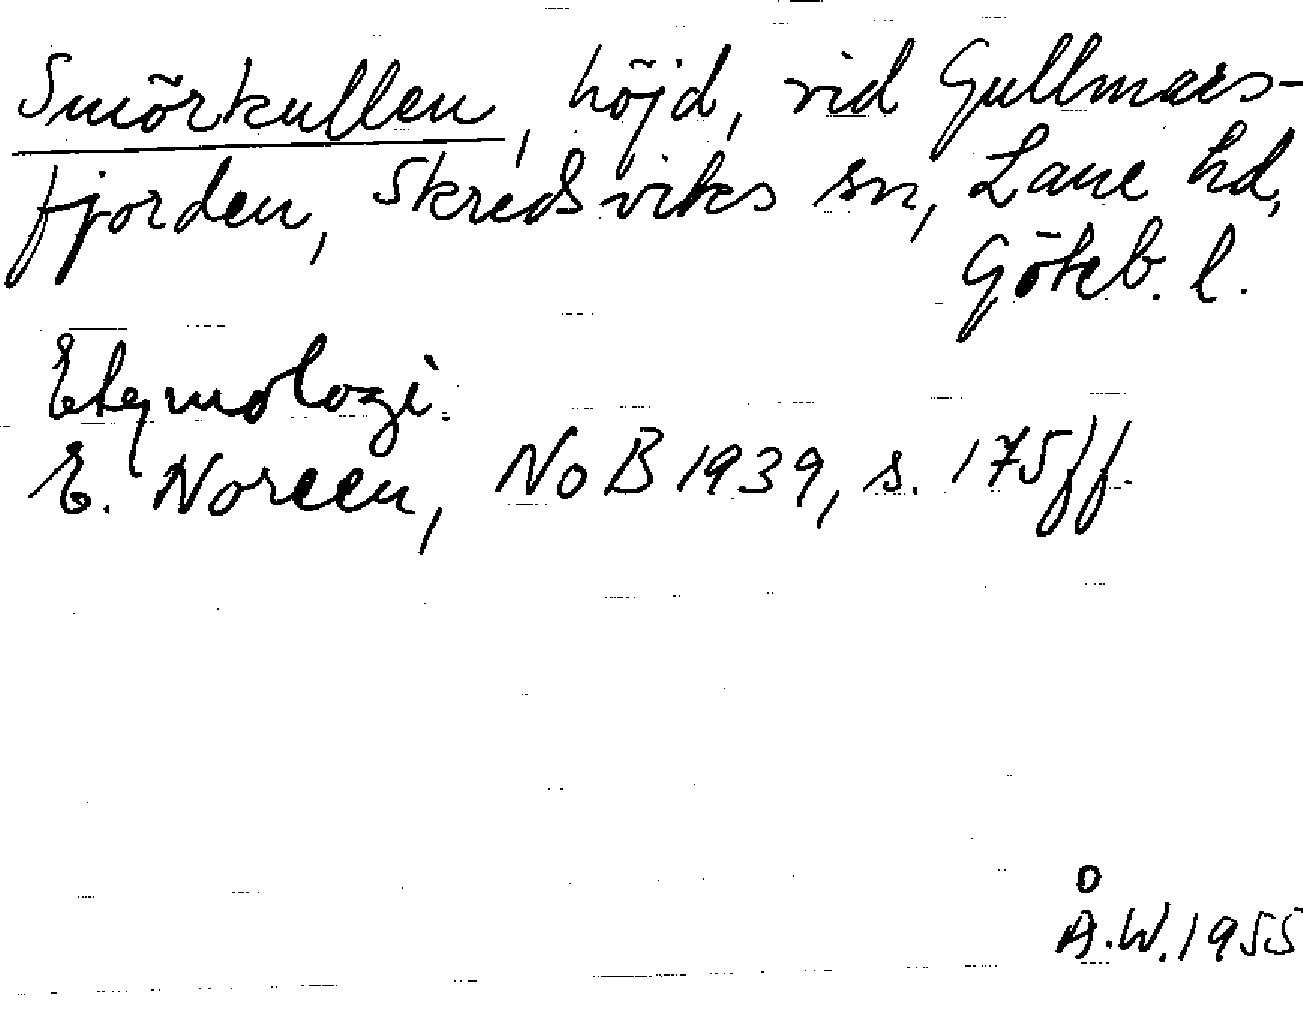 Smörkullen, höjd, vid Gullmars-
fjorden, Skredsviks sn, Lane hd,
Göteb. l.
Etymologi.
E. Noreen, NoB 1939, s. 175ff.
Å.W. 1955